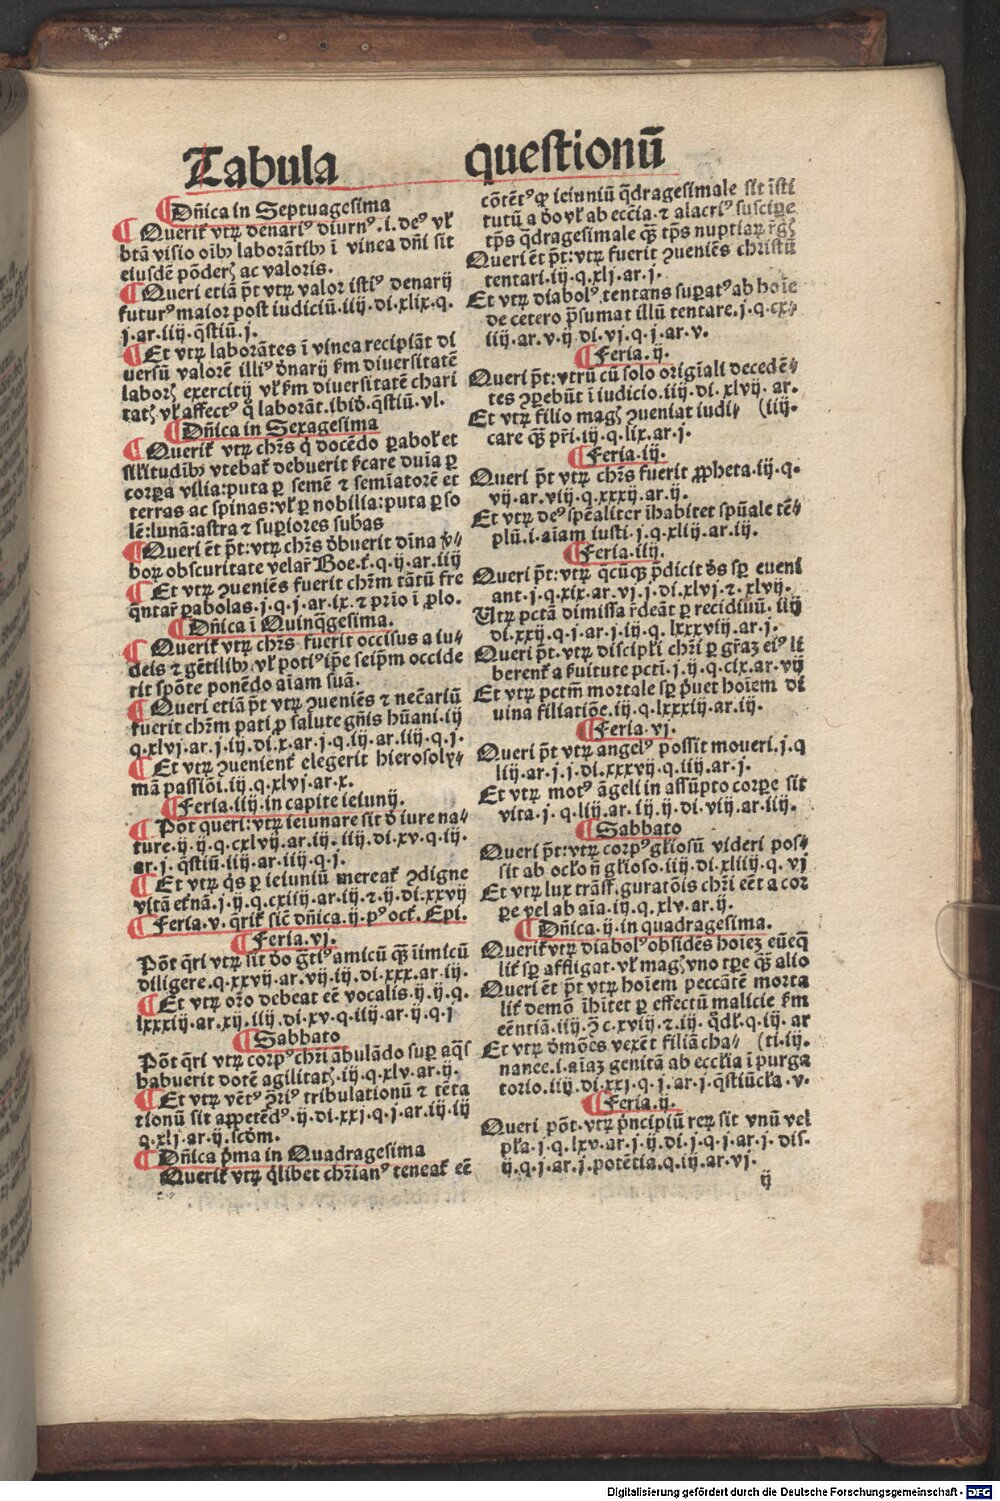 Tabula questionū
Dn̄ica in Septuagesima
Querit̄ vtrꝫ denariꝰ diurnꝰ .i. deꝰ vl̄
btā visio oīb; laborātib; ī vinea dn̄i sit
eiusdē pōderꝭ ac valoris.
Queri etiā pōt vtrꝫ valor istiꝰ denarij
futurꝰ maior post iudiciū.iiij.di.xlix.q.
j.ar.iiij.q̄stiū.j.
Et vtrꝫ laborātes ī vinea recipiāt di
uersū valorē illiꝰ dn̄arij ẜm diuersitatē
laborꝭ exercitij vl̄ ẜm diuersitatē chari
tatꝭ vl̄ affectꝰ q̄ laborāt.ibid.q̄stiū.vl.
Dn̄ica in Sexagesima
Querit̄ vtrꝫ chr̄s q̄ docēdo ꝑabol̄ et
sil̄itudīb; vtebat̄ debuerit ẜcare duīa ꝑ
corꝑa vilia:puta ꝑ semē ⁊ semīatorē et
terras ac spinas:vl̄ ꝑ nobilia:puta ꝑ so
lē:lunā:astra ⁊ suꝑiores subas
Queri ēt pōt:vtrꝫ chr̄s debuerit dīna v̄-
boꝝ obscuritate velar̄ Boe.t̄.q.ij.ar.iiij
Et vtrꝫ ↄueniēs fuerit chr̄m tātū fre
q̄ntar̄ ꝑabolas.j.q.j.ar.ix.⁊ prīo ī ꝓlo.
Dn̄ica ī Quinq̄gesima.
Querit̄ vtrꝫ chr̄s fuerit occisus a iu-
deis ⁊ gētilib; vl̄ potiꝰ ip̄e seip̄m occide
rit spōte ponēdo aīam suā.
Queri etiā pōt vtrꝫ ↄueniēs ⁊ nec̄ariū
fuerit chr̄m pati ꝓ salute gn̄is hūani.iij
q.xlvj.ar.j.iij.di.x.ar.j.q.iij.ar.iiij.q.j.
Et vtrꝫ ↄuenient̄ elegerit hierosoly-
mā passiōi.iij.q.xlvj.ar.x.
Feria.iiij.in capite ieiunij.
Pōt queri:vtrꝫ ieiunare sit d̄ iure na-
ture.ij.ij.q.cxlvij.ar.iij.iiij.di.xv.q.iij.
ar.j.q̄stiū.iiij.ar.iiij.q.j.
Et vtrꝫ q̄s ꝑ ieiuniū mereat̄ ↄdigne
vitā et̄nā.j.ij.q.cxiiij.ar.iij.⁊.ij.di.xxvij
Feria.v.q̄rit̄ sic̄ dn̄ica.ij.pꝰ oct̄. Epi.
Feria.vj.
Pōt q̄ri vtrꝫ sit do g̅tiꝰ amicū q̄ꝫ īimicū
diligere.q.xxvij.ar.vij.iij.di.xxx.ar.iij.
Et vtrꝫ or̄o debeat eē vocalis.ij.ij.q.
lxxxiij.ar.xij.iiij.di.xv.q.iiij.ar.ij.q.j
Sabbato
Pōt q̄ri vtrꝫ corpꝰ chr̄i ābulādo suꝑ aq̄s
habuerit dotē agilitatꝭ.iij.q.xlv.ar.ij.
Et vtrꝫ vētꝰ ꝓriꝰ tribulationū ⁊ tēta
tionū sit appetēdꝰ.ij.di.xxj.q.j.ar.iij.iij
q.xlj.ar.ij.scdm.
Dn̄ica p̄ma in Quadragesima
Querit̄ vtrꝫ q̄libet chr̄ianꝰ teneat̄ eē
cōtētꝰ ꝙ ieiuniū q̄dragesimale sit īsti
tutū a deo vl̄ ab eccīa.⁊ alacriꝰ suscipe
tp̄s q̄dragesimale q̄ꝫ tp̄s nuptiaꝝ
Queri ēt pōt:vtrꝫ fuerit ↄueniēs christū
tentari.iij.q.xlj.ar.j.
Et vtrꝫ diabolꝰ tentans suꝑatꝰ ab hoīe
de cetero p̄sumat illū tentare.j.q.cx-
iiij.ar.v.ij di.vj.q.j.ar.v.
Feria.ij.
Queri pōt:vtrū cū solo origīali decedē-
tes ꝑhebūt ī iudicio.iiij.di.xlvij.ar.
Et vtrꝫ filio magꝭ ↄueniat iudi- (iij.
care q̄ꝫ pr̄i.iij.q.lix.ar.j.
Feria.iij.
Queri pōt vtrꝫ chr̄s fuerit ꝓpheta.iij.q.
vij.ar.viij.q.xxxij.ar.ij.
Et vtrꝫ deꝰ spēaliter īhabitet spūale tē-
plū.i.aīam iusti.j.q.xliij.ar.iij.
Feria.iiij.
Queri pōt:vtrꝫ q̄cūqꝫ p̄dicit d̄s sꝑ eueni
ant.j.q.xix.ar.vj.j.di.xlvj.⁊.xlvij.
Vtrꝫ pctā dimissa r̄deāt ꝑ recidiuū.iiij
di.xxij.q.j.ar.j.iij.q.lxxxviij.ar.j.
Queri pōt.vtrꝫ discipl̄i chr̄i ꝑ gr̄aꝫ eiꝰ li
berent̄ a ẜuitute pcti.j.ij.q.cix.ar.vij
Et vtrꝫ pctm̄ mortale sꝑ p̄uet hoīem di
uina filiatiōe.iij.q.lxxxiij.ar.iij.
Feria.vj.
Queri pōt vtrꝫ angelꝰ possit moueri.j.q
liij.ar.j.j.di.xxxvij.q.iiij.ar.j.
Et vtrꝫ motꝰ āgeli in assūpto corꝑe sit
vita.j.q.liij.ar.iij.ij.di.viij.ar.iiij.
Sabbato
Queri pōt:vtrꝫ corpꝰ gl̄iosū videri pos-
sit ab ocl̄o n̄ gl̄ioso.iiij.di.xliiij.q.vj
Et vtrꝫ lux trāsfiguratōis chr̄i eēt a cor
ꝑe vel ab aīa.iij.q.xlv.ar.ij.
Dn̄ica.ij.in quadragesima.
Querit̄ vtrꝫ diabolꝰ obsidēs hoiēꝫ eūēq̄
lit̄ sꝑ affligat.vl̄ magꝭ vno tꝑe q̄ꝫ alio
Queri ēt pōt vtrꝫ hoīem peccātē morta
lit̄ demō īhītet ꝑ effectū malicie ẜm
eēntiā.iiij.ꝯ̄ c.xviij.⁊.iij.q̄dl̄.q.iij.ar
Et vtrꝫ dēmōes vexēt filiā cha- (ti.iij.
nanee.i.aīaꝫ genitā ab eccl̄ia ī purga
torio.iiij.di.xxj.q.j.ar.j.q̄stiūcl̄a.v.
Feria.ij.
Queri pōt.vtrꝫ p̄ncipiū reꝝ sit vnū vel
pl̄a.j.q.lxv.ar.j.ij.di.j.q.j.ar.j.dis.
ij.q.j.ar.j.potētia.q.iij.ar.vj.
ij
Digitalisierung gefördert durch die Deutsche Forschungsgemeinschaft - DFG